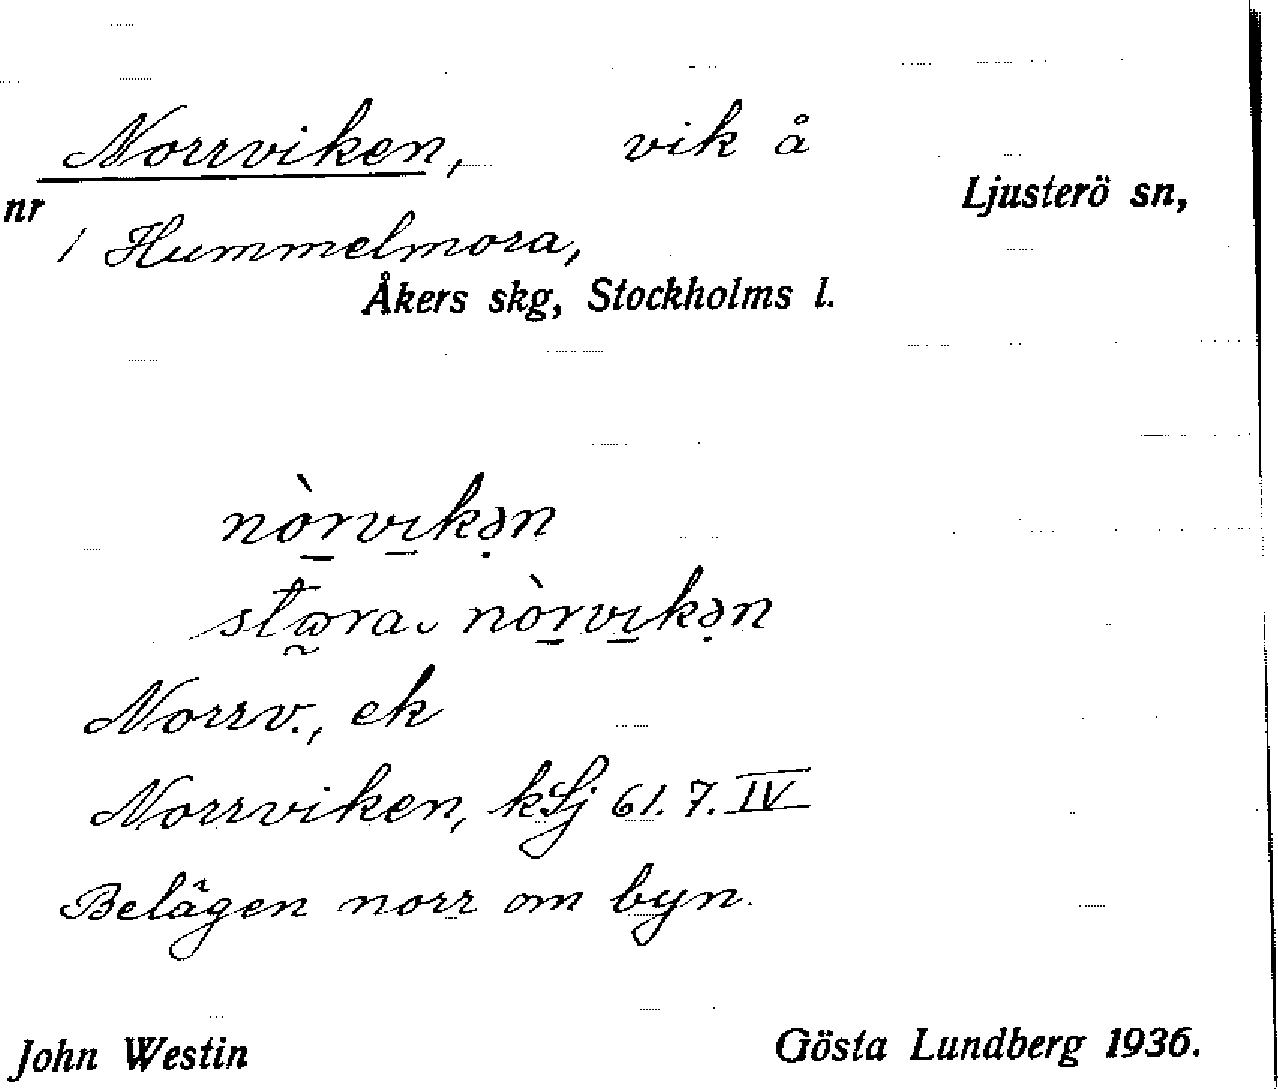 Norrviken, vik å
Ljusterö sn,
nr
1 Hummelmora,
Åkers skg, Stockholms l.
nòrvıkən
stɷra nòrvıkən
Norrv., ek
Norrviken, kLj 61. 7. IV
Belägen norr om byn.
John Westin Gösta Lundberg 1936.